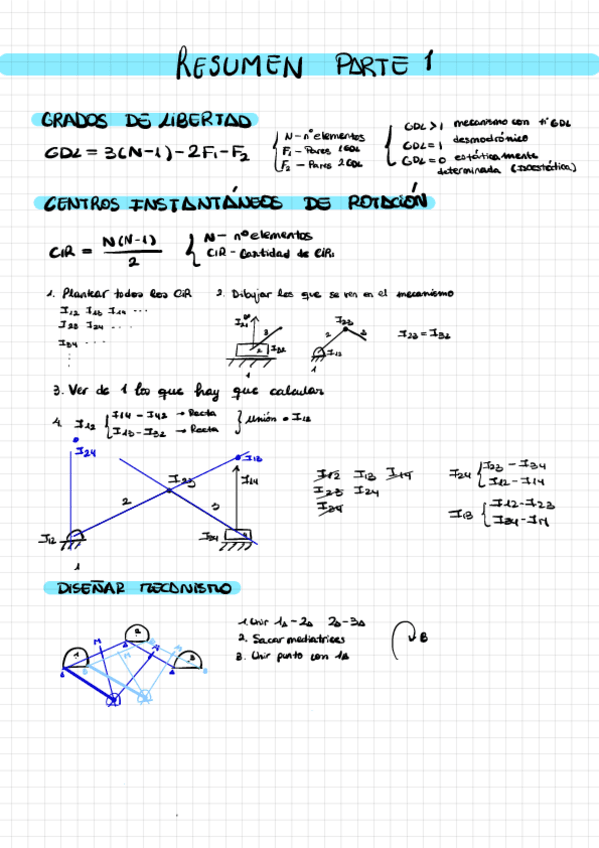 RESUMEN PARTE 1
GRADOS DE LIBERTAD
GDL = 3(N-1) - 2F1 - F2
N - nº elementos
F1 - Pares 1GDL
F2 - Pares 2GDL
GDL > 1 mecanismo con GDL
GDL = 1 desmodrómico
GDL = 0 estáticamente
determinada (isostática)
CENTROS INSTANTÁNEOS DE ROTACIÓN
CIR = N(N-1) / 2
N - nº elementos
CIR - Cantidad de CIRs
1. Plantear todos los CIR
I12 I13 I14 ...
I23 I24 ...
I34 ...
2. Dibujar los que se ven en el mecanismo
I23
2 3
I12
1
I23 = I32
3. Ver de 1 los que hay que calcular
4. I12
I14 - I42 → Recta
I13 - I32 → Recta
Unión = I12
I24
I13
I23
I14
2
3
I12
I34
1
I12 I13 I14
I23 I24
I34
I24
I23 - I34
I12 - I14
I13
I12 - I23
I34 - I14
DISEÑAR MECANISMO
1. Unir 1A - 2A 2A - 3A
2. Sacar mediatrices
3. Unir punto con 1A
B